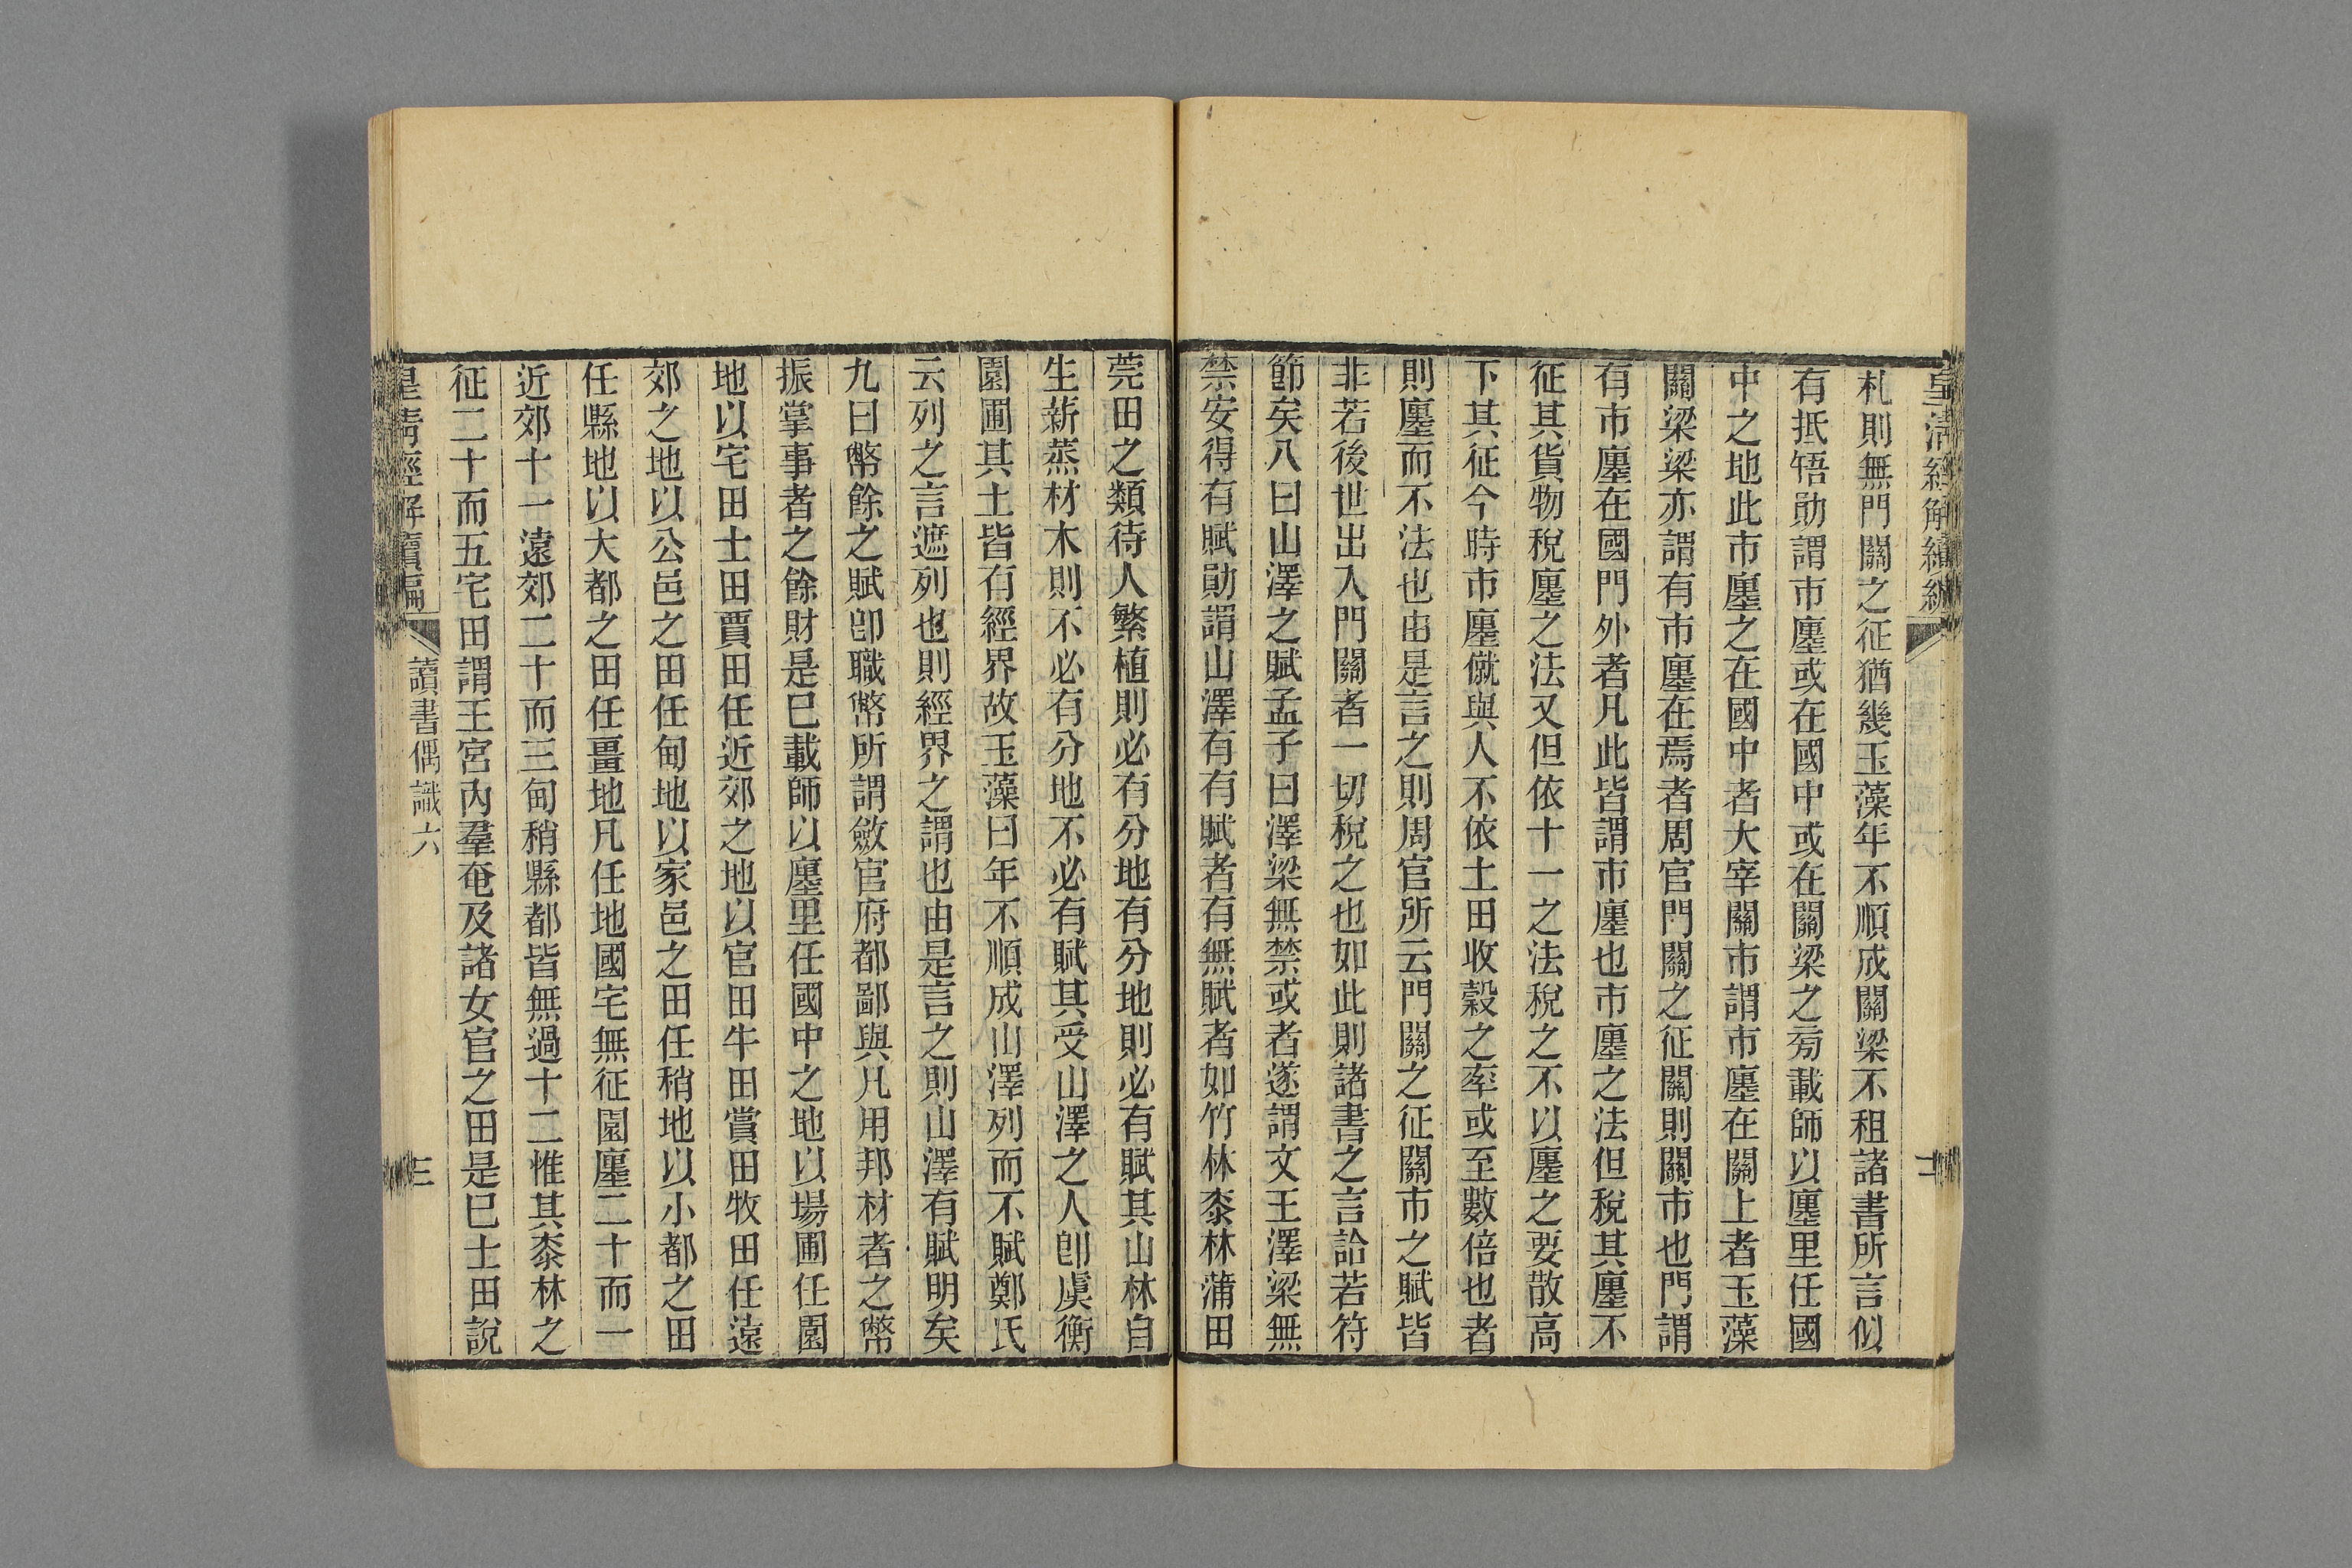 皇清經解續編
二
札則無門關之征猶幾玉藻年不順成關梁不租諸書所言似
有抵牾勛謂市廛或在國中或在關梁之旁載師以廛里任國
中之地此市廛之在國中者大宰關市謂市廛在關上者玉藻
關梁梁亦謂有市廛在焉者周官門關之征關則關市也門謂
有市廛在國門外者凡此皆謂市廛也市廛之法但稅其廛不
征其貨物稅廛之法又但依十一之法稅之不以廛之要散高
下其征今時市廛僦與人不依土田收穀之率或至數倍也者
則廛而不法也由是言之則周官所云門關之征關市之賦皆
非若後世出入門關者一切稅之也如此則諸書之言詥若符
節矣八曰山澤之賦孟子曰澤梁無禁或者遂謂文王澤梁無
禁安得有賦勛謂山澤有有賦者有無賦者如竹林桼林蒲田
莞田之類待人繁植則必有分地有分地則必有賦其山林自
生薪蒸材木則不必有分地不必有賦其受山澤之人卽虞衡
園圃其土皆有經界故玉藻曰年不順成山澤列而不賦鄭氏
云列之言遮列也則經界之謂也由是言之則山澤有賦明矣
九曰幣餘之賦卽職幣所謂斂官府都鄙與凡用邦材者之幣
振掌事者之餘財是巳載師以廛里任國中之地以場圃任園
地以宅田士田賈田任近郊之地以官田牛田賞田牧田任遠
郊之地以公邑之田任甸地以家邑之田任稍地以小都之田
任縣地以大都之田任畺地凡任地國宅無征園廛二十而一
近郊十一遠郊二十而三甸稍縣都皆無過十二惟其桼林之
征二十而五宅田謂王宮內羣奄及諸女官之田是巳士田說
皇清經解續編
讀書偶識六
三